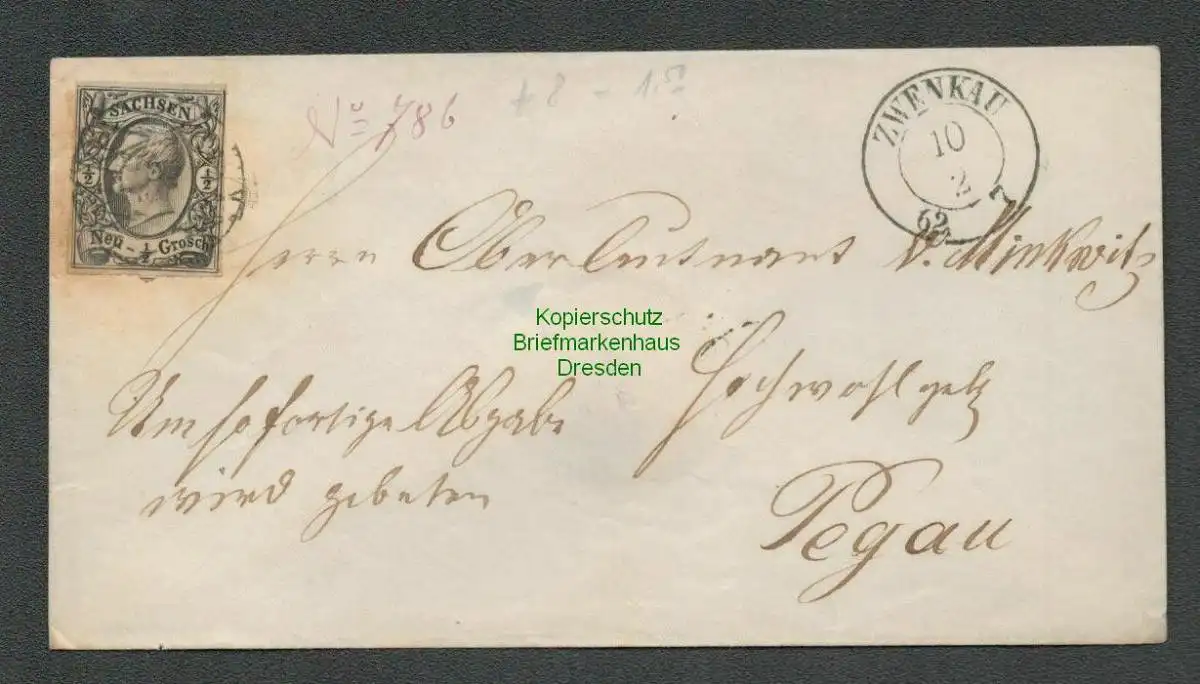 SACHSEN
½ ½
Neu - ½ Grosch
No 786
ZWENKAU
10
2
62
Herrn Oberleutnant v. Minkwitz
Kopierschutz
Briefmarkenhaus
Dresden
Hochwohlgeb
Um sofortige Abgabe
wird gebeten
Pegau